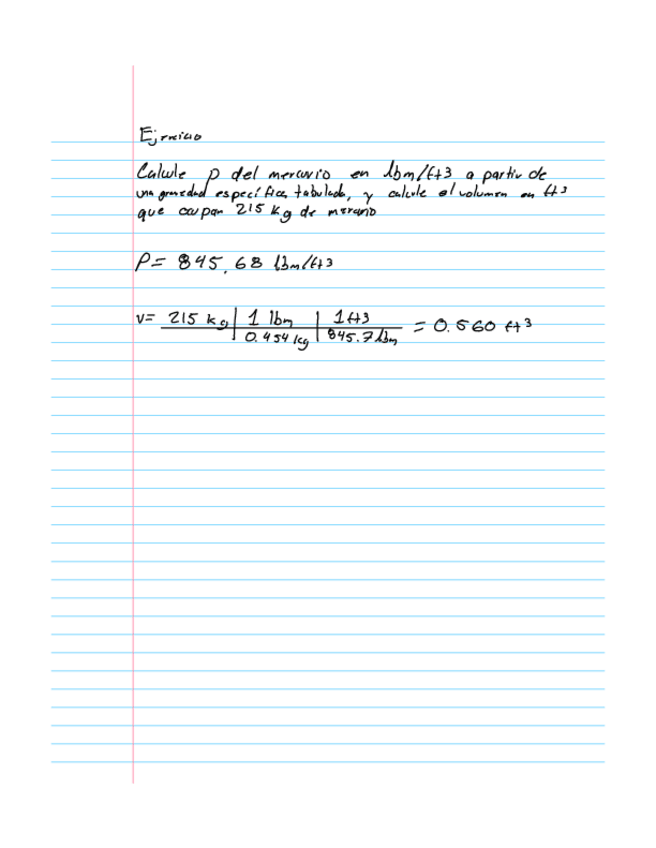 Ejercicio
Calcule ρ del mercurio en lbm/ft3 a partir de
una gravedad específica tabulada, y calcule el volumen en ft3
que ocupan 215 kg de mercurio
ρ = 845.68 lbm/ft3
v = 215 kg | 1 lbm | 1 ft3 = 0.560 ft3
0.454 kg | 845.7 lbm